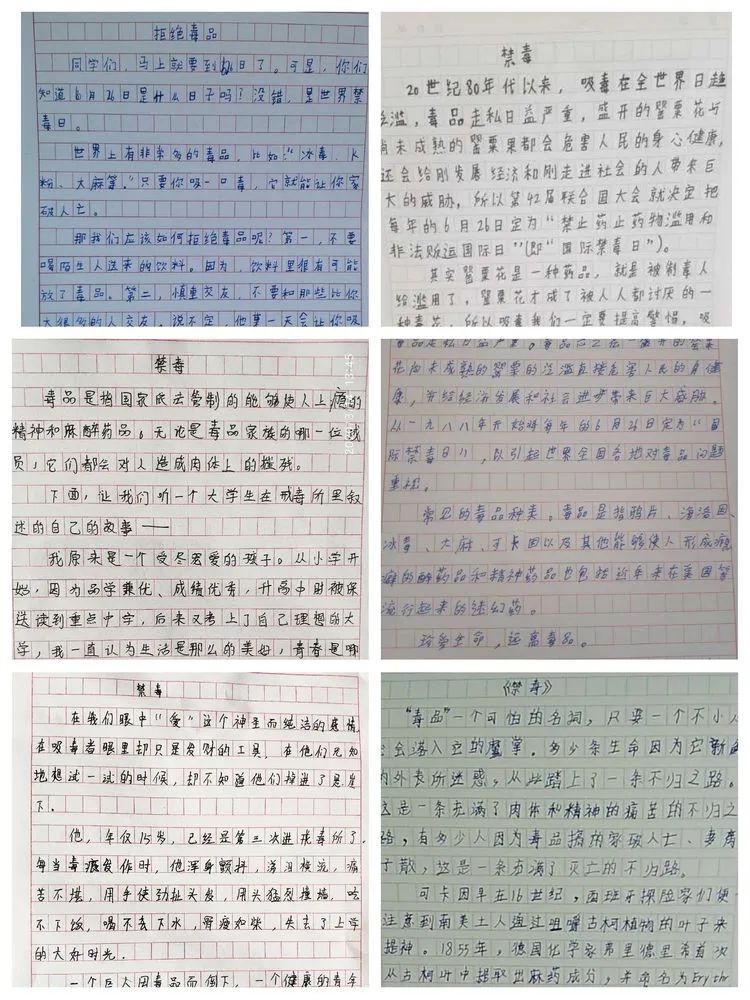 拒绝毒品
同学们，马上就要到 日了。可是，你们
知道6月26日是什么日子吗？没错，是世界禁
毒日。
世界上有非常多的毒品，比如：“冰毒、K
粉、大麻等。”只要你吸一口毒，它就能让你家
破人亡。
那我们应该如何拒绝毒品呢？第一，不要
喝陌生人送来的饮料。因为，饮料里很有可能
放了毒品。第二，慎重交友，不要和那些比你
大很多的人交友，说不定，他某一天会让你吸
禁毒
20世纪80年代以来，吸毒在全世界日趋
滥，毒品走私日益严重，盛开的罂粟花与
尚未成熟的罂粟果都会危害人民的身心健康，
还会给刚发展经济和刚走进社会的人带来巨
大的威胁，所以第42届联合国大会就决定把
每年的6月26日定为“禁止药止药物滥用和
非法贩运国际日”（即“国际禁毒日”）。
其实罂粟花是一种药品，就是被制毒人
给滥用了，罂粟花才成了被人人都讨厌的一
种毒花，所以吸毒我们一定要提高警惕，吸
禁毒
毒品是指国家依法管制的能够使人上瘾的
精神和麻醉药品。无论是毒品家族的哪一位成
员，它们都会对人造成肉体上的摧残。
下面，让我们听一个大学生在戒毒所里叙
述的自己的故事——
我原来是一个受尽宠爱的孩子。从小学开
始，因为品学兼优、成绩优秀，升高中时被保
送读到重点中学，后来又考上了自己理想的大
学，我一直认为生活是那么的美好，青春是哪
花尚未成熟的罂粟的泛滥直接危害人民的身健
康，并给经济发展和社会进步带来巨大威胁。
从一九八八年开始将每年的6月26日定为“国
际禁毒日”，以引起世界全国各地对毒品问题
重视。
常见的毒品种类。毒品是指鸦片、海洛因、
冰毒、大麻、可卡因以及其他能够使人形成瘾
癖的醉药品和精神药品也包括近年来在美国等
流行起来的迷幻药。
珍爱生命，远离毒品。
禁毒
在我们眼中“爱”这个神圣而纯洁的感情，
在吸毒者眼里却只是发财的工具，在他们无知
地想试一试的时候，却不知道他们掉进了悬崖
下。
他，年仅15岁，已经是第三次进戒毒所了，
每当毒瘾发作时，他浑身颤抖，涕泪横流，痛
苦不堪，用手使劲扯头发，用头猛烈撞墙，吃
不下饭，喝不去下水，骨瘦如柴，失去了上学
的大好时光。
一个巨人因毒品而倒下，一个健康的青年
《禁毒》
“毒品”一个可怕的名词，只要一个不小心
会落入它的魔掌。多少条生命因为它新
的外表所迷惑，从此踏上了一条不归之路。
这是一条充满了肉体和精神的痛苦的不归之
路，有多少人因为毒品搞的家破人亡、妻离
子散，这是一条充满了灭亡的不归路。
可卡因早在16世纪，西班牙探险家们便
注意到南美土人通过咀嚼古柯植物的叶子来
提神。1855年，德国化学家弗里德里希首次
从古柯叶中提取出麻药成分，并命名为Erythr